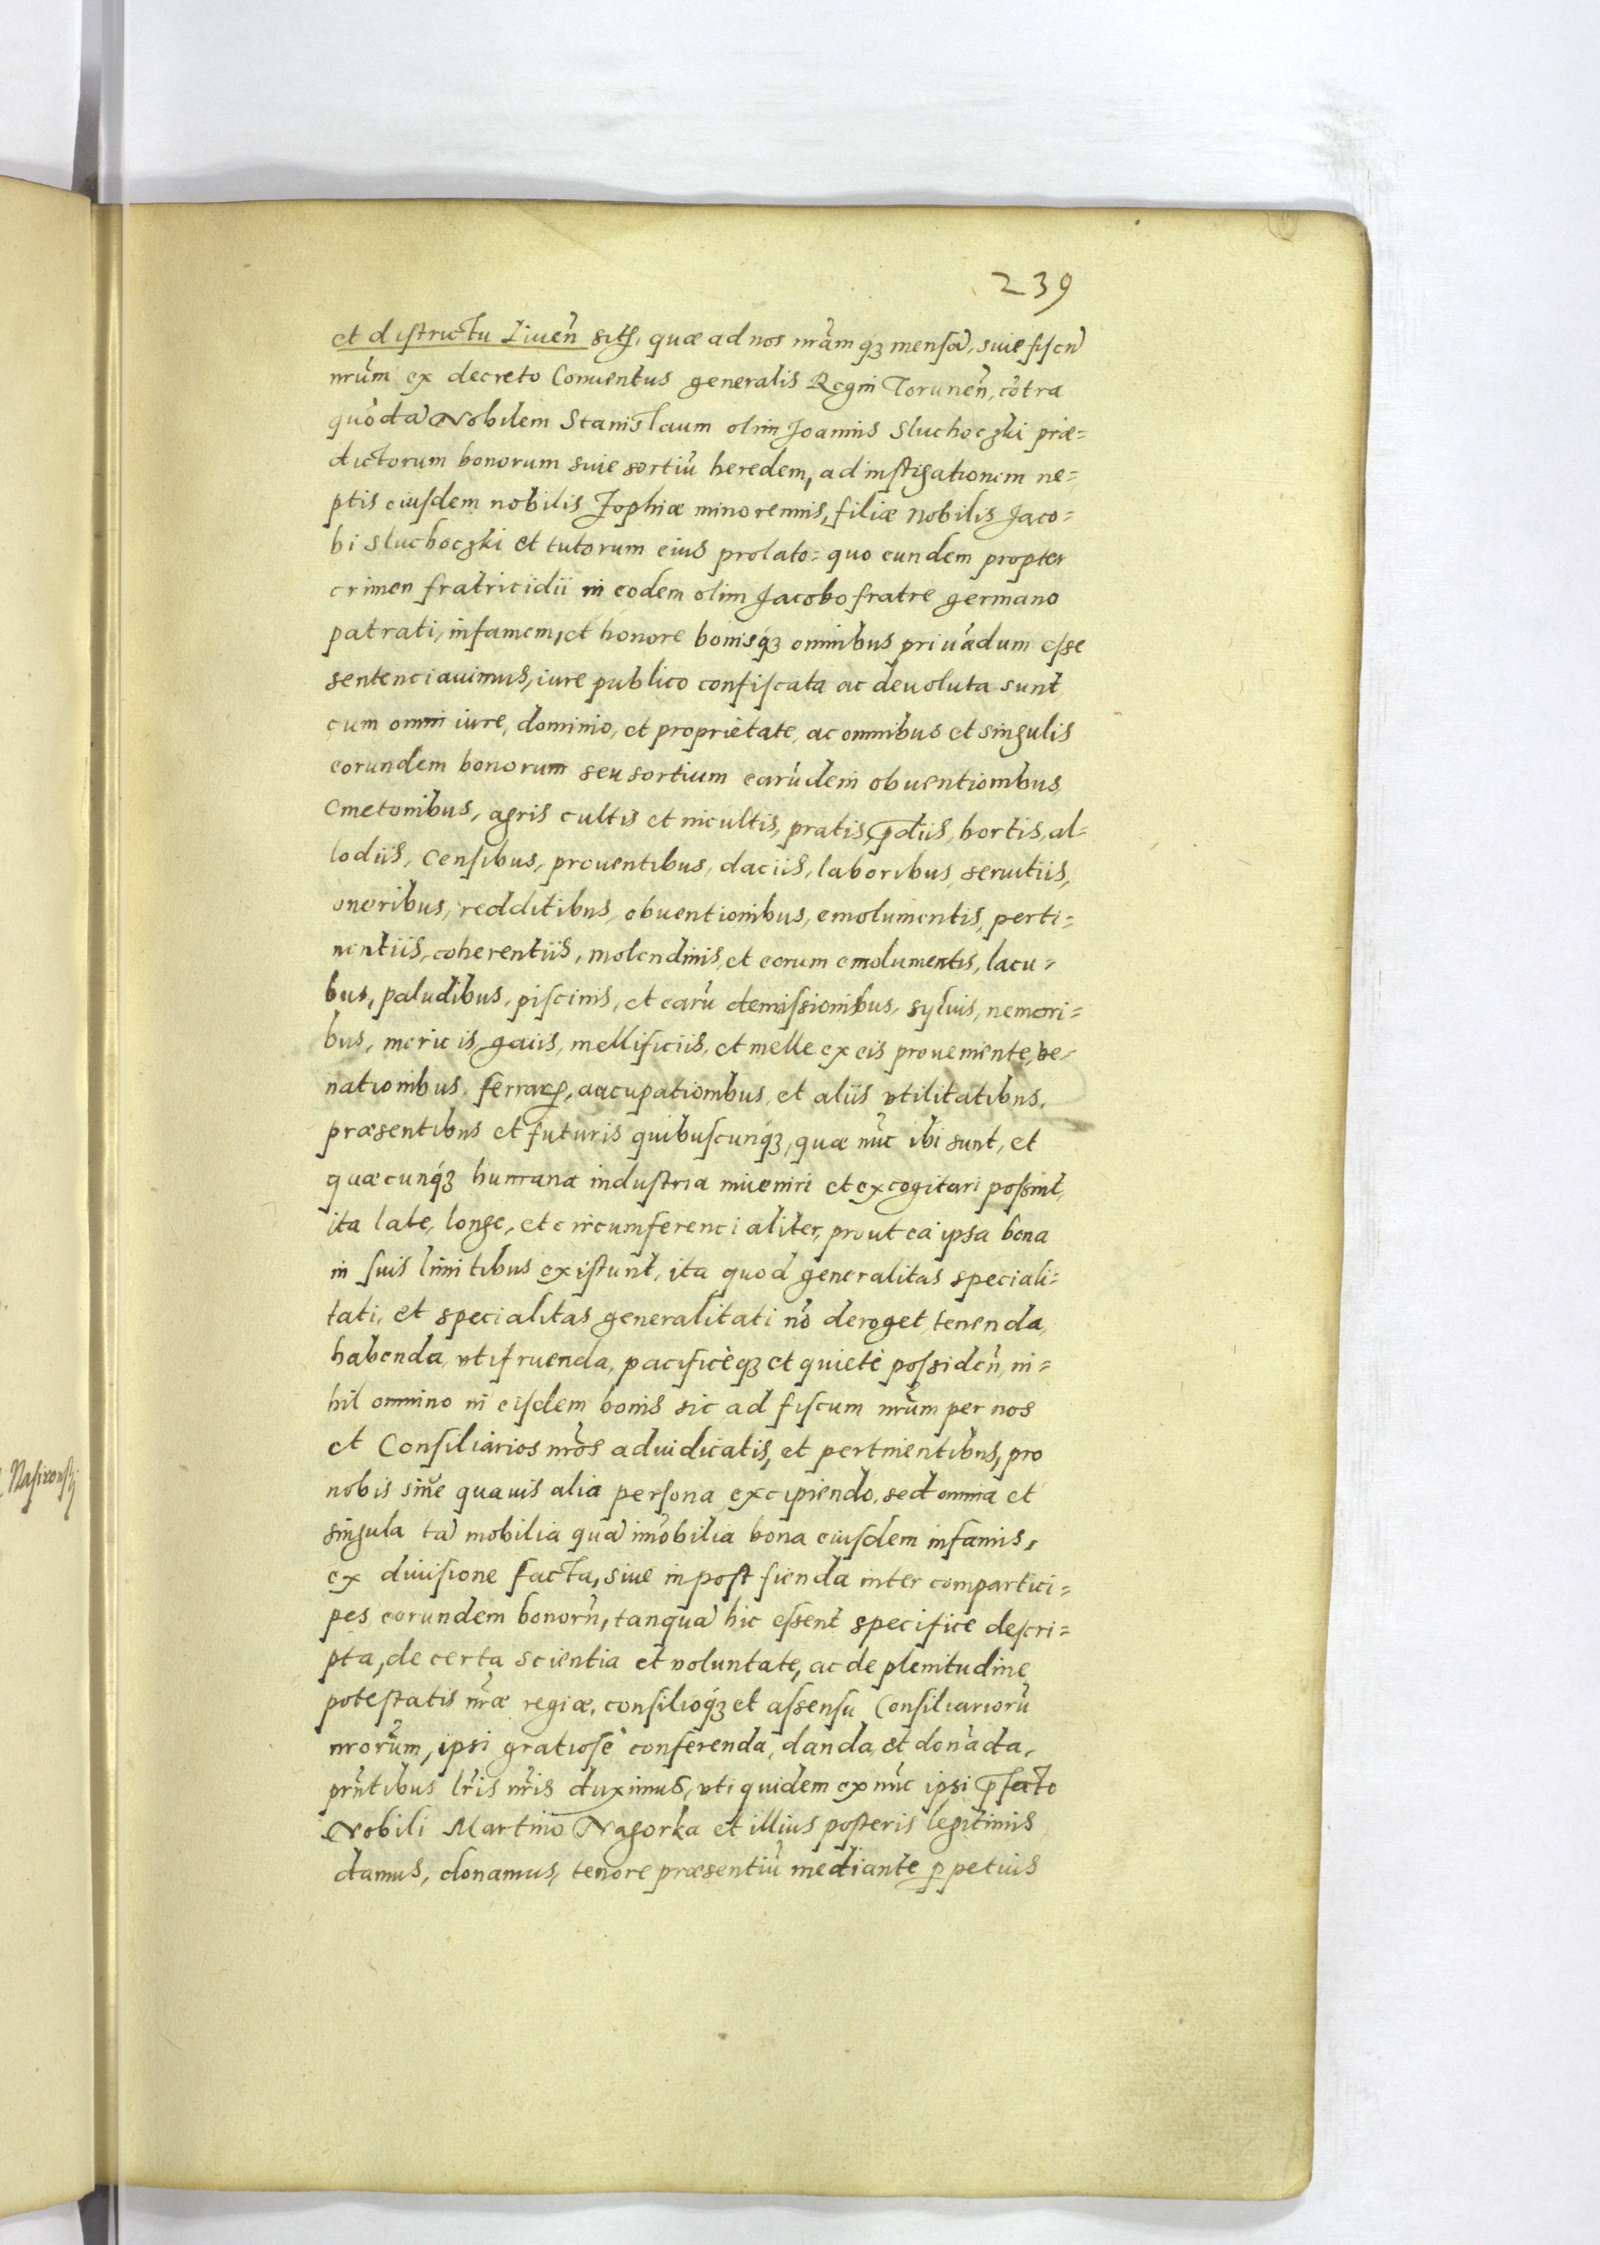 239
et districtu Liuen̄ sitis, quæ ad nos nr̄amq́ʒ mensā, siue fiscū
nr̄um ex decreto Conuentus generalis Regni Torunen̄, cōtra
quōdā Nobilem Stanislaum olim Joannis Sluchoczki præ=
dictorum bonorum siue sortiū heredem, ad instigationem ne=
ptis eiusdem nobilis Zophiæ minorennis, filiæ Nobilis Jaco=
bi Sluchoczki et tutorum eius prolato= quo eundem propter
crimen fratricidii in eodem olim Jacobo fratre germano
patrati, infamem, et honore bonisq́ʒ omnibus priuādum esse
sentenciauimus, iure publico confiscata ac deuoluta sunt
cum omni iure, dominio, et proprietate, ac omnibus et singulis
eorundem bonorum seu sortium earūdem obuentionibus,
Cmetonibus, agris cultis et incultis, pratis, p̄diis, hortis, al=
lodiis, Censibus, prouentibus, daciis, laboribus, seruitiis,
oneribus, redditibus, obuentionibus, emolumentis, perti=
nentiis, coherentiis, molendinis, et eorum emolumentis, lacu=
bus, paludibus, piscinis, et earū demissionibus, syluis, nemori=
bus, mericis, gaiis, mellificiis, et melle ex eis proueniente, ve=
nationibus ferrarꝙ, aucupationibus, et aliis vtilitatibus,
præsentibus et futuris quibuscunq́ʒ, quæ nūc ibi sunt, et
quæcunq́ʒ humana industria inueniri et excogitari possint,
ita late, longe, et circumferencialiter, prout ea ipsa bona
in suis limitibus existunt, ita quod generalitas speciali=
tati, et specialitas generalitati nō deroget, tenenda,
habenda, vtifruenda, pacificèqʒ et quietè possiden̄, ni=
hil omnino in eisdem bonis sic ad fiscum nr̄um per nos
et Consiliarios nr̄os adiudicatis, et pertinentibus, pro
nobis siue quauis alia persona excipiendo, sed omnia et
singula tā mobilia quā imōbilia bona eiusdem infamis,
ex diuisione facta, siue in post fienda inter compartici=
pes eorundem bonorū, tanquā hic essent specifice descri=
pta, de certa scientia et voluntate, ac de plenitudine
potestatis nr̄æ regiæ, consilioq́ʒ et assensu Consiliariorū
nrōrum, ipsi gratiosè conferenda, danda, et donāda,
prn̄tibus lr̄is nr̄is duximus, vti quidem ex nūc ipsi p̄fato
Nobili Martino Nagorka et illius posteris legitimis
damus, donamus, tenore præsentiū mediante ꝑpetuis
Nasirouski